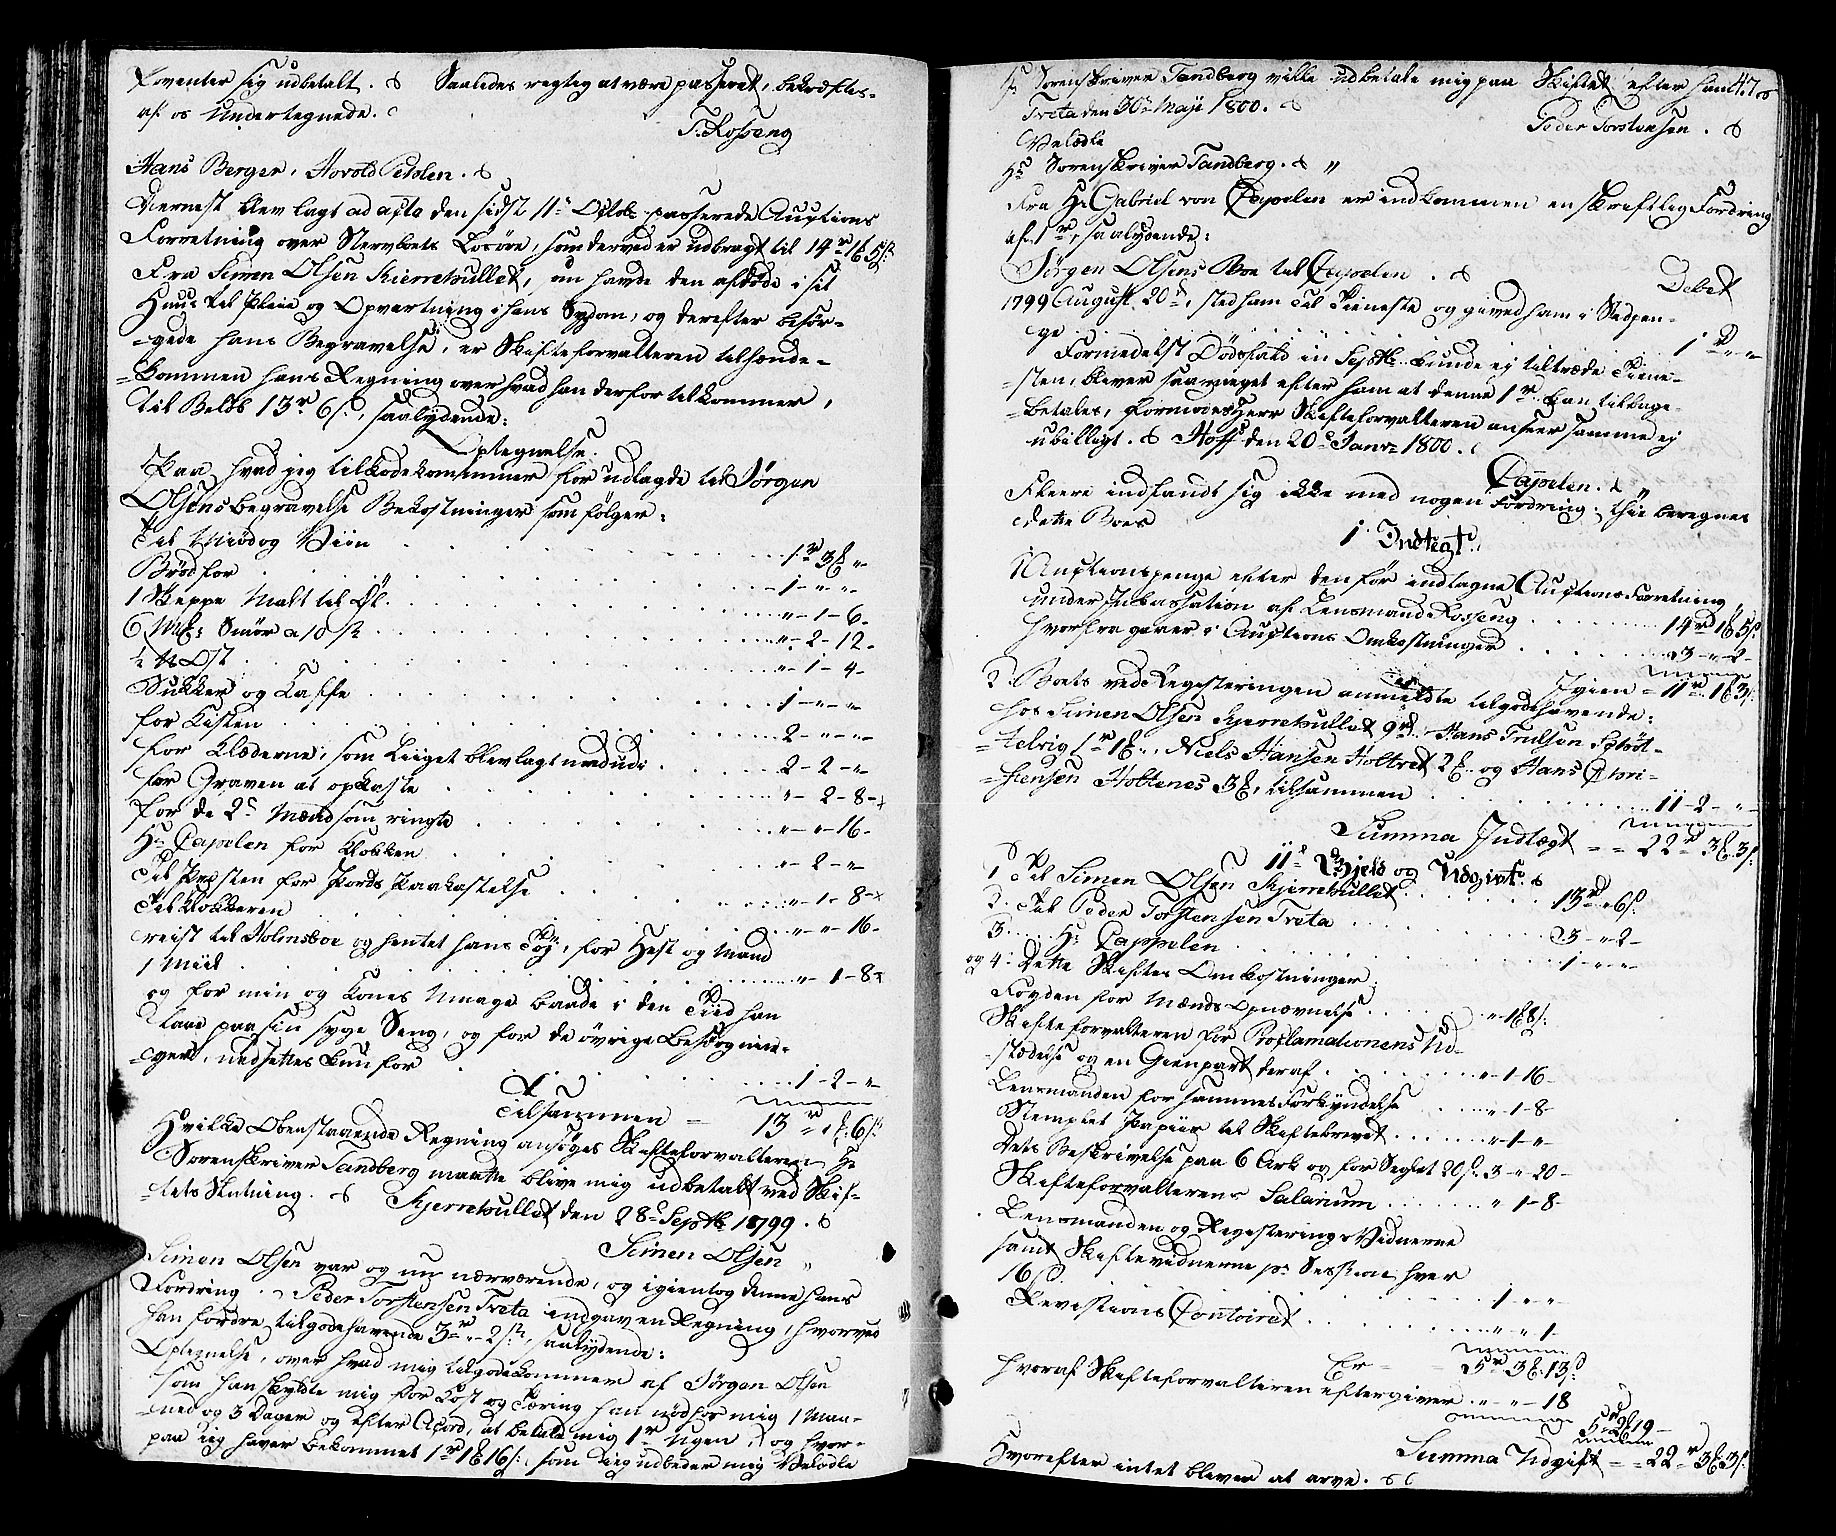 venter sig udbetalt. Saaledes rigtig at være passeret, bekræftes
af os Undertegnede.
T. Rosseng
Hans Berger, Hovold
Dernest blev lagt ad acta den sidst 11te Octobr passerede Auctions
Forretning over Stervboets Løsøre, som derved er udbragt til 14 rd 1 ß 5 s.
Fra Simen Olsen Kierrehullet, som havde den afdøde i sit
Huus til Pleie og Opvartning i hans Sygdom, og derefter besør-
-gede hans Begravelse, er Skifteforvalteren tilhænde-
-kommen hans Regning over hvad han derfor tilkommer,
til Beløb 13 r 6 s., saalydende:
Optegnelse.
Paa hvad jeg tilkodekommer for udlagde til Jørgen
Olsens begravelse Bekostninger som følger:
Til Miød og Viin . . . 1 r 3 ß "
Brød for . . . 1 - " - "
1 Skeppe Malt til Øl . . . " - 1 - 6 -
6 Mk: Smør a 10 s . . . " - 2 - 12 -
½ Ost . . . " - 1 - 4 -
Sukker og Caffe . . . 1 - " - "
for Kisten . . . 2 - " - "
for Klæderne, som Liiget blev lagt ned udi . . . 2 - 2 - "
for Graven at opkaste . . . " - 2 - 8 -
for de 2de Mænd som ringte . . . " - " - 16 -
Hr Capelen for Klokken . . . " - 2 - "
Til Præsten for Jords Paakastelse . . . " - 1 - 8 -
Til Klokkeren . . . " - " - 16 -
reist til Holmsboe og hentet hans Tøj, for Hest og Mand
1 Miil . . . " - 1 - 8 -
og for min og Kones Umage baade i den Tiid han
laae paa sin syge Seng, og for de øvrige Besøgnin-
-ger, nedsettes kun for . . . 1 - 2 - "
Tilsammen = 13 rd " ß 6 s.
Hvilke Obenstaaende Regning ansøges Skifteforvalteren Hr
Sorenskriver Tandberg maatte blive mig udbetalt ved Skif-
-tets Slutning. Kjerrehullet den 28de Septbr 1799.
Simen Olsen
Simen Olsen var og nu nærværende, og igientog denne hans
Fordring. Peder Torstensen Tveta indgav en Regning, hvorved
han fordre tilgodehavende 3 r " 2 s., saalydende:
Optegnelse, over hvad mig tilgodekommer af Jørgen Olsen
som han skyldte mig for Kost og Tæring han nød hos mig 1 Maa-
-ned og 3 Dager og efter Acord, at betale mig 1 r Ugen, og hvor-
paa jeg haver bekommet 1 r 1 ß 16 s., som jeg udbeder mig Velædle
Hr Sorenskriver Tandberg ville udbetale mig paa Skiftet efter ham. 47
Tveta den 30te Maji 1800.
Peder Torstensen.
Velædle
Hr Sorenskriver Tandberg. "
Fra Hr Gabriel von Capelen er indkommen en skriftlig Fordring
af 1 r, saalydende:
Jørgen Olsens Boe til Capelen. Debet
1799 August 20de, sted ham til Tieneste og gived ham i Stedpen-
ge . . . 1 rd " "
Formedelst Dødsfald in Septbr kunde ej tiltræde Tiene-
-sten, bliver saameget efter ham at denne 1 r kan tilbage-
-betales, formodes Herr Skifteforvalteren anseer samme ej
ubilligt. Hoff den 20de Janr 1800.
Capelen.
Fleere indfandt sig ikke med nogen Fordring. Thi beregnes
dette Boes
1. Indtegt.
1 Auctionspenge efter den før indtagne Auctions Forretning
under Inkassation af Lensmand Rosseng . . . 14 rd 1 ß 5 s.
hvorfra gaaer i Auctions Omkostninger . . . 3 - " - 2 -
Igien = 11 r 1 ß 3 s.
2. Boets ved Registeringen anmeldte tilgodehavende:
hos Simen Olsen Kjerrehullet 9 rd. Hans Trulsen
-telvig 1 r 1 ß ", Niels Hansen Holtret 2 ß. og Hans Chri-
-stensen Holtenes 3 ß, tilsammen . . . 11 - 2 - "
Summa Indtægt = = 22 r 3 ß 3 s.
II. Gjeld og Udgivt.
1 Til Simen Olsen Kjerrehullet . . . 13 rd " 6 s.
2. Til Peder Torstensen Tveta . . . 3 - " 2 -
3. . . Hr Cappelen . . . 1 - " - "
og 4. Dette Skiftes Omkostninger:
Fogden for Mænds Opnævnelse . . . " 1 ß 8 s.
Skifteforvalteren for Proclamationens Ud-
-stædelse og en Gienpart deraf . . . " - 1 - 16 -
Lensmanden for sammes Forkyndelse . . . " - 1 - 8 -
Stemplet Papiir til Skiftebrevet . . . " - 1 - "
Dets Beskrivelse paa 6 Ark og for Seglet 20 s. 3 - " - 20 -
Skifteforvalterens Salarium . . . " - 1 - 8 -
Lensmanden og Registerings Vidnerne
samt Skiftevidnerne pr Session hver
16 s. . . . 1 " "
Revisions Contoiret . . . " " 1
Er = 5 r 3 ß 13 s.
hvoraf Skifteforvalteren eftergiver . " - " - 18
5 rd 2 ß 19 -
Summa Udgift = = 22 r 3 ß 3 s.
Hvorefter intet blever at arve.